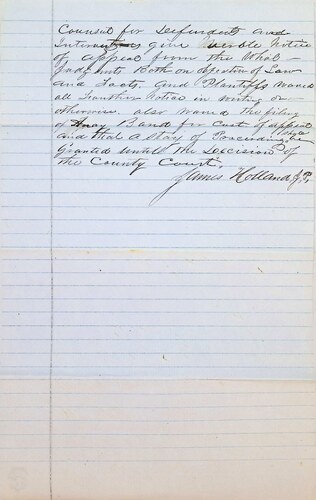 Counsel for Defendants and
Intervenors give Verble Notice
of Appeal from the Whol
Judgments Both on Question of Law
and Facts. and Plantiffs waved
all Further Notice in writing or
otherwise also waved the filing
of Any Band for Cost of Appeal
and that a Stay of Proceedings be
granted untill the Decision of
the County Court.
James Holland J.P.